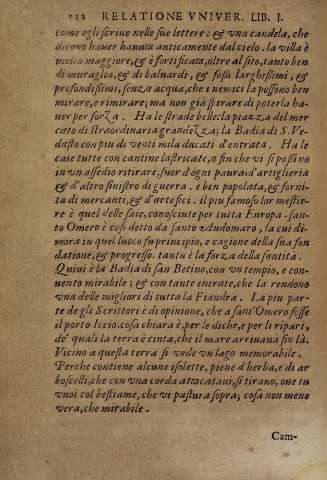 132 RELATIONE VNIVER. LIB. I.
come egli scriue nelle sue lettere: & vna candela, che
dicono hauer hauuta anticamente dal cielo. la villa è
molto maggiore, & è fortificata, oltre al sito, tanto ben
di muraglia, & di baluardi, & fossi larghissimi, &
profondissimi, senza acqua, che i nemici la possono ben
mirare, e rimirare; ma non già sperare di poterla ha-
uer per forza. Ha le strade belle: la piazza del mer
cato di straordinaria grandezza; la Badia di S. Ve-
dasto con piu di venti mila ducati d'entrata. Ha le
case tutte con cantine lastricate, a fin che vi si possino
in vn assedio ritirare, fuor d'ogni paura d'artiglieria
& d'altro sinistro di guerra. è ben popolata, & forni-
ta di mercanti, & d'artefici. il piu famoso lor mestie-
re è quel delle saie, conosciute per tutta Europa. san-
to Omero è così detto da santo Audomaro, la cui di-
mora in quel luoco fu principio, e cagione della sua fon
datione, & progresso. tantu è la forza della santità.
Quiui è la Badia di san Betino, con vn tempio, e con-
uento mirabile; & con tante entrate, che la rendono
vna delle migliori di tutta la Fiandra. La piu par-
te de gli Scrittori è di opinione, che a sant'Omero fosse
il porto Iccio. cosa chiara è, per le diche, e per li ripari,
de' quali la terra è cinta, che il mare arriuaua sin là.
Vicino a questa terra si vede vn lago memorabile.
Perche contiene alcune isolette, piene d'herba, e di ar
boscelli, che con vna corda attaccataui, si tirano, oue tu
vuoi col bestiame, che vi pastura sopra; cosa non meno
vera, che mirabile.
Cam-